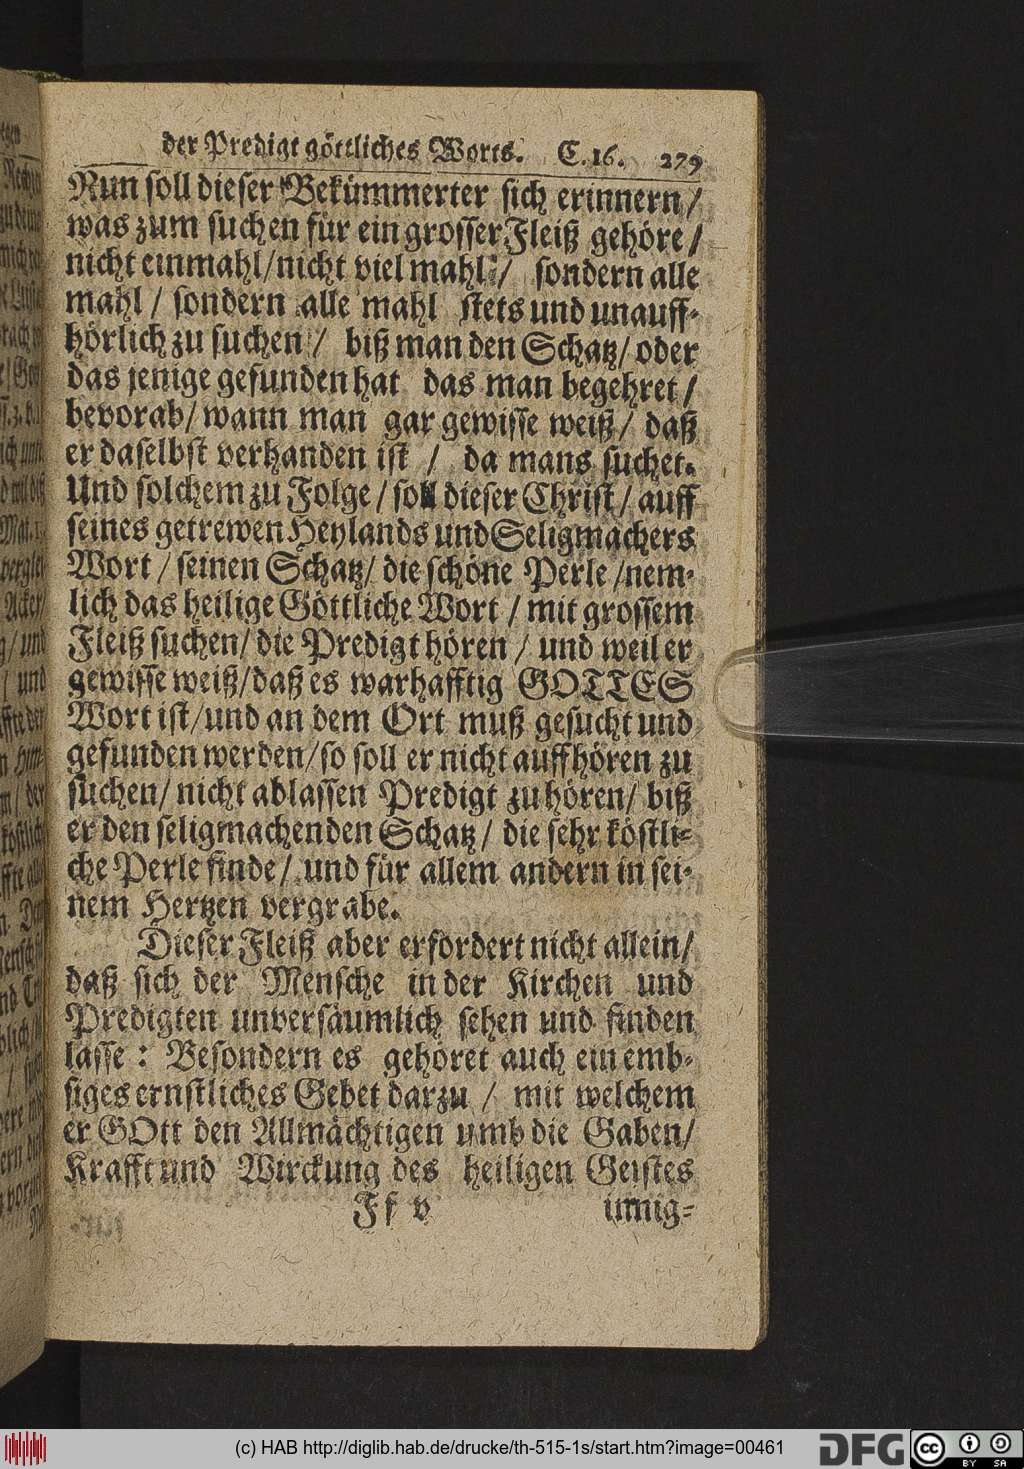 der Predigt göttliches Worts. C. 16. 279
Nun soll dieser Bekümmerter sich erinnern /
was zum suchen für ein grosser Fleiß gehöre /
nicht einmahl / nicht viel mahl / sondern alle
mahl / sondern alle mahl stets und unauff-
hörlich zu suchen / biß man den Schatz / oder
das jenige gefunden hat das man begehret /
bevorab / wann man gar gewisse weiß / daß
er daselbst verhanden ist / da mans suchet.
Und solchem zu Folge / soll dieser Christ / auff
seines getrewen Heylands und Seligmachers
Wort / seinen Schatz / die schöne Perle / nem-
lich das heilige Göttliche Wort / mit grossem
Fleiß suchen / die Predigt hören / und weil er
gewisse weiß / daß es warhafftig GOTTES
Wort ist / und an dem Ort muß gesucht und
gefunden werden / so soll er nicht auffhören zu
suchen / nicht ablassen Predigt zu hören / biß
er den seligmachenden Schatz / die sehr köstli-
che Perle finde / und für allem andern in sei-
nem Hertzen vergrabe.
Dieser Fleiß aber erfordert nicht allein /
daß sich der Mensche in der Kirchen und
Predigten unversäumlich sehen und finden
lasse : Besondern es gehöret auch ein emb-
siges ernstliches Gebet darzu / mit welchem
er GOtt den Allmächtigen umb die Gaben /
Krafft und Wirckung des heiligen Geistes
Ff v innig-
(c) HAB http://diglib.hab.de/drucke/th-515-1s/start.htm?image=00461
DFG
cc BY SA